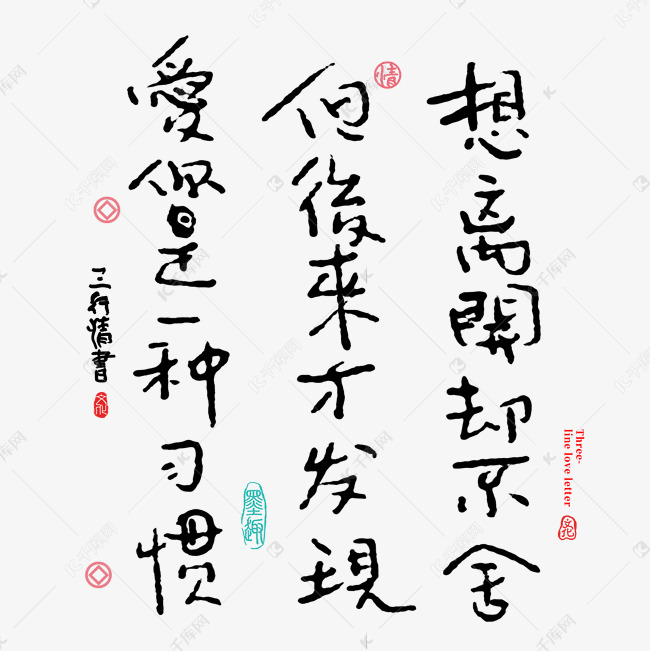 想离開却不舍
但後來才发現
愛佀是一种习惯
三行情書
情
墨趣
Three-
line love letter
千库网